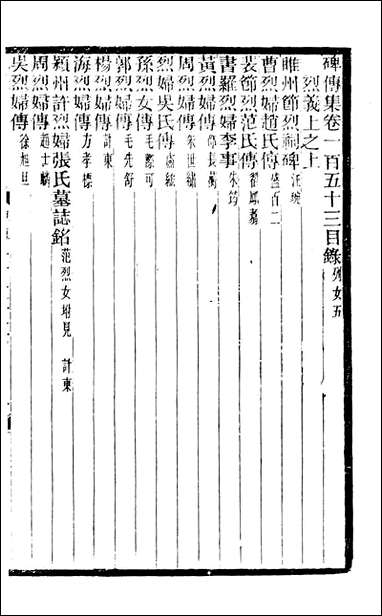 碑傳集卷一百五十三目錄列女五
烈義上之上
睢州節烈祠碑 汪琬
曹烈婦趙氏傳 盛百二
裴節烈范氏傳
書羅烈婦李事 朱筠
黃烈婦傳
周烈婦傳 朱世
烈婦吳氏傳
孫烈女傳 毛際可
郭烈婦傳 毛先舒
楊烈婦傳 計東
海烈婦傳 方孝標
潁州許烈婦張氏墓誌銘 范烈女坿見 計東
周烈婦傳 趙士麟
吳烈婦傳 徐旭旦